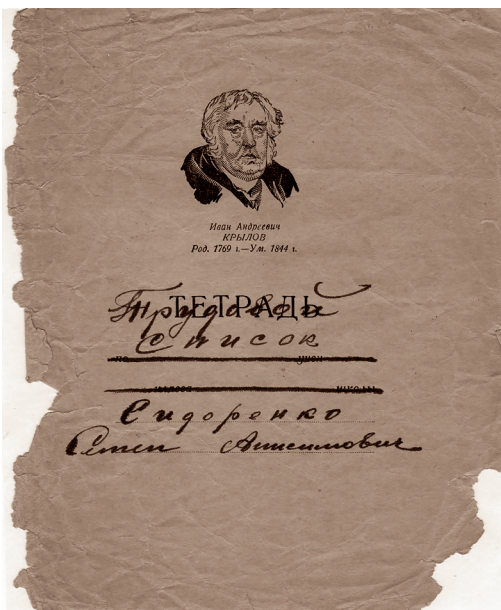 Иван Андреевич
КРЫЛОВ
Род. 1769 г.—Ум. 1844 г.
ТЕТРАДЬ
Трудовой
Список
по учен
класса школы
Сидоренко
Семен Анисимович